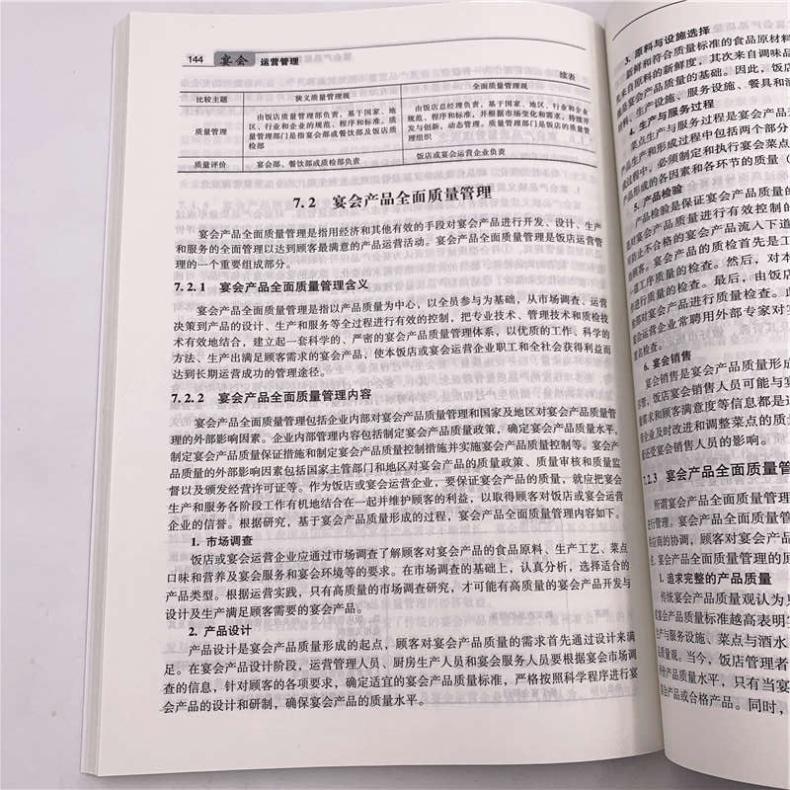 144 宴会 运营管理
续表
比较主题 狭义质量管理观 全面质量管理观
质量管理
由饭店质量管理部负责，基于国家、地
区、行业和企业的规范、程序和标准。质
量管理部门是指宴会部或餐饮部及饭店质
检部
由饭店总经理负责，基于国家、地区、行业和企业
规范、程序和标准，并根据市场变化和需求，持续开
发与创新，动态管理。质量管理部门是饭店的质量管
理组织
质量评价 宴会部、餐饮部或质检部负责 饭店或宴会运营企业负责
7.2 宴会产品全面质量管理
宴会产品全面质量管理是指用经济和其他有效的手段对宴会产品进行开发、设计、生产
和服务的全面管理以达到顾客最满意的产品运营活动。宴会产品全面质量管理是饭店运营管
理的一个重要组成部分。
7.2.1 宴会产品全面质量管理含义
宴会产品全面质量管理是指以产品质量为中心，以全员参与为基础，从市场调查、运营
决策到产品的设计、生产和服务等全过程进行有效的控制，把专业技术、管理技术和质检技
术有效地结合，建立起一套科学的、严密的宴会产品质量管理体系，以优质的工作、科学的
方法、生产出满足顾客需求的宴会产品，使本饭店或宴会运营企业职工和全社会获得利益而
达到长期运营成功的管理途径。
7.2.2 宴会产品全面质量管理内容
宴会产品全面质量管理包括企业内部对宴会产品质量管理和国家及地区对宴会产品质量管
理的外部影响因素。企业内部管理内容包括制定宴会产品质量政策，确定宴会产品质量水平，
制定宴会产品质量保证措施和制定宴会产品质量控制措施并实施宴会产品质量控制等。宴会产
品质量的外部影响因素包括国家主管部门和地区对宴会产品的质量政策、质量审核和质量监
督以及颁发经营许可证等。作为饭店或宴会运营企业，要保证宴会产品的质量，就应把宴会
生产和服务各阶段工作有机地结合在一起并维护顾客的利益，以取得顾客对饭店或宴会运营
企业的信誉。根据研究，基于宴会产品质量形成的过程，宴会产品全面质量管理内容如下。
1. 市场调查
饭店或宴会运营企业应通过市场调查了解顾客对宴会产品的食品原料、生产工艺、菜点
口味和营养及宴会服务和宴会环境等的要求。在市场调查的基础上，认真分析，选择适合的
产品类型。根据运营实践，只有高质量的市场调查研究，才可能有高质量的宴会产品开发与
设计及生产满足顾客需要的宴会产品。
2. 产品设计
产品设计是宴会产品质量形成的起点，顾客对宴会产品质量的需求首先通过设计来满
足。在宴会产品设计阶段，运营管理人员、厨房生产人员和宴会服务人员要根据宴会市场调
查的信息，针对顾客的各项要求，确定适宜的宴会产品质量标准，严格按照科学程序进行宴
会产品的设计和研制，确保宴会产品的质量水平。
3. 原料与设施选择
新鲜和符合质量标准的食品原材料
来自原料的新鲜度，其次来自调味品
是宴会产品质量的基础。因此，饭店
材料、生产设施、服务设施、餐具和酒
4. 生产与服务过程
菜点生产与服务过程是宴会产品
产品生产和形成过程中包括两个部分
成过程中，必须制定和执行宴会菜点
产品形成的各因素和各环节的质量（
5. 产品检验
产品检验是保证宴会产品质量的
是对宴会产品质量进行有效控制的
防止不合格的宴会产品流入下道
顾客。宴会产品的质检首先是工
工序质量的检查。然后，对本
进行质量的检查。最后，由饭店
部对宴会产品进行质量检查。此
会运营企业常聘用外部专家对宴
检查。
6. 宴会销售
宴会销售是宴会产品质量形成
饭店宴会销售人员可能与宴
需求和顾客满意度等信息都是通
企业及时改进和调整菜点的质
受宴会销售人员的影响。
7.2.3 宴会产品全面质量管
所谓宴会产品全面质量管理
进行管理。宴会产品全面质量管理
应商的协调，顾客对宴会产品
宴会产品全面质量管理的原
1. 追求完整的产品质量
传统宴会产品质量观认为只
宴会产品质量标准越高表明宴
生产与服务设施、菜点与酒水
质量观。当今，饭店管理者
产品质量水平，只有当宴
会产品或合格产品。同时，